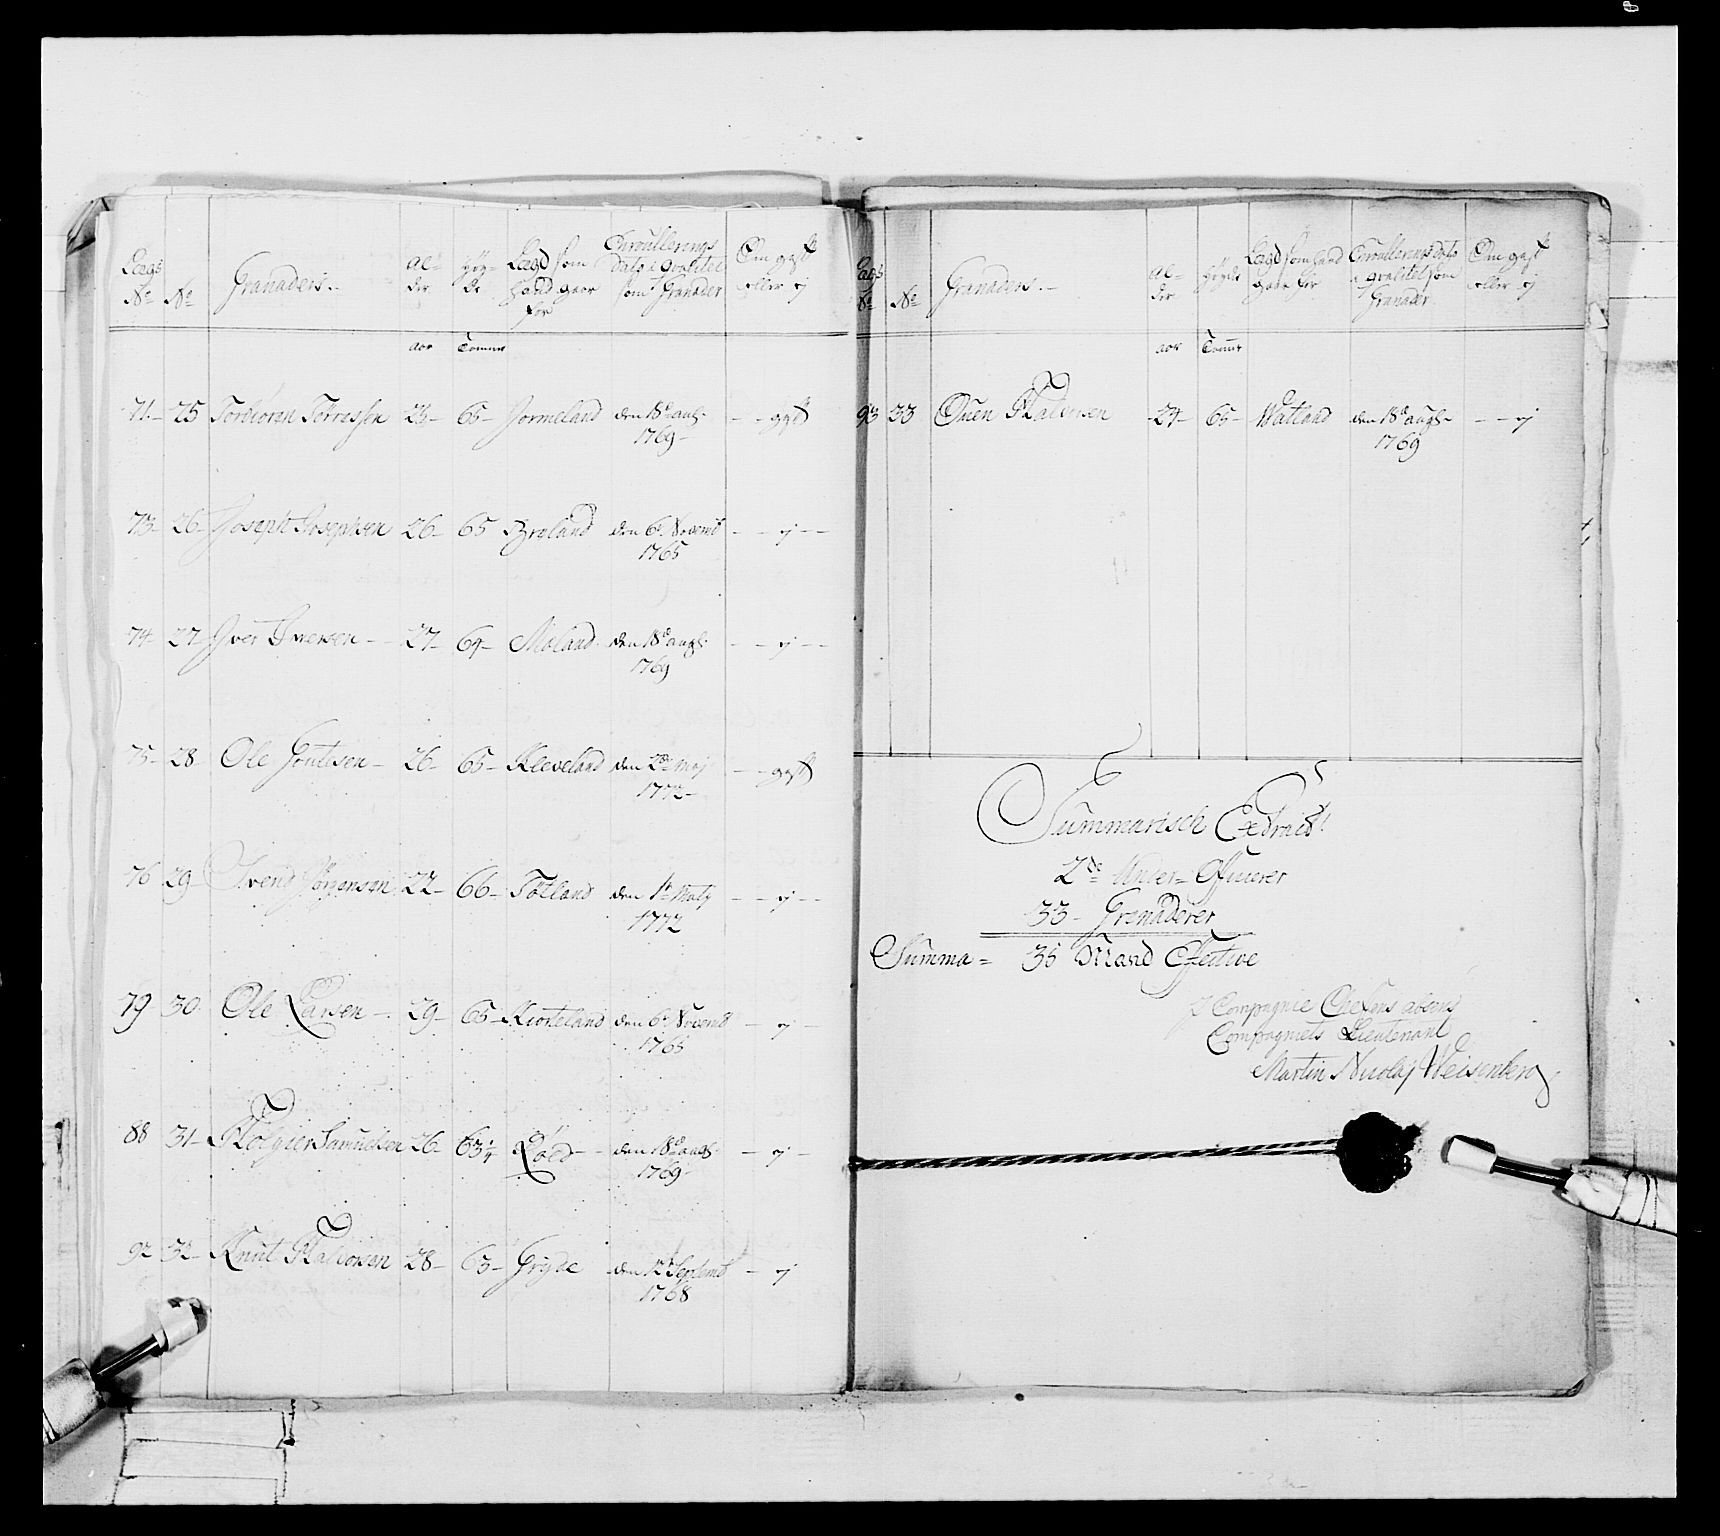 Lægs No | No | Granaders | Al-der | Høy-de | Lægd som hand gaar for | Enroullerings dato i qvalitet som Granader | Om gift eller ej
aar | Tommer
71 | 25 | Torbiören Tarresen | 23 | 65 | Jormeland | den 18de aug: 1769 | gift
73 | 26 | Joseph Josephsen | 26 | 65 | Broland | den 6t Novemb 1765 | ej
74 | 27 | Iver Iversen | 27 | 64 | Moland | den 18de aug: 1769 | ej
75 | 28 | Ole Goutesen | 26 | 65 | Kleveland | den 2de Maj 1772 | gift
76 | 29 | Svend Jörgensen | 22 | 66 | Totland | den 1te Maij 1772 | ej
79 | 30 | Ole Larsen | 29 | 65 | Kiorteland | den 6t Novemb 1765 | ej
88 | 31 | Holgier Samuelsen | 26 | 63 1/4 | Röed | den 18de aug: 1769 | ej
92 | 32 | Knut Halvorsen | 28 | 63 | Gryde | den 12t Septemb 1768 | ej
Lægs No | No | Granaders | Al-der | Høyde | Lægd som hand gaar for | Enroullerings dato i qvalitet som Granader | Om gift eller ej
aar | Tommer
93 | 33 | Ouen Halvorsen | 24 | 65 | Watland | den 18de aug: 1769 | ej
Summarisch Extract
2de Under-Officerer
33 Grenaderer
Summa = 35 Mand Effective
Compagnie Chefens
Compagniets Lieutenant
Martin Nicolaj Weisenberg